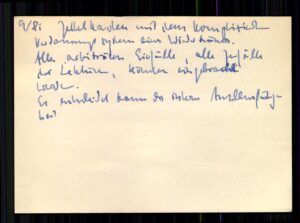 9/8i Zettelkasten mit dem komplizierten
Verdauungssystem eines Wiederkäuers.
Alle arbiträren Einfälle, alle Zufälle
der Lektüren, können eingebracht
werden.
Es entscheidet dann die interne Anschlußfähig-
keit